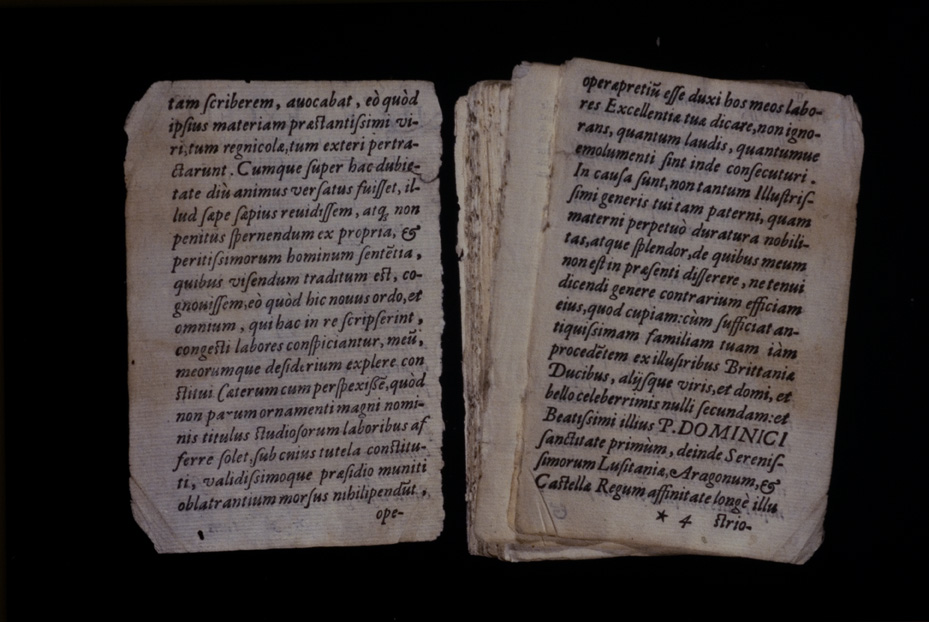 tam ſcriberem, auocabat, eò quòd
ipſius materiam præſtantiſsimi vi-
ri, tum regnicolæ, tum exteri pertra-
ctarunt. Cumque ſuper hac dubie-
tate diù animus verſatus fuiſſet, il-
lud ſæpe ſæpius reuidiſſem, atq; non
penitus ſpernendum ex propria, &
peritiſsimorum hominum ſentẽtia,
quibus viſendum traditum eſt, co-
gnouiſſem, eò quòd hic nouus ordo, et
omnium, qui hac in re ſcripſerint,
congeſti labores conſpiciantur, meũ,
meorumque deſiderium explere con
ſtitui Cæterum cum perſpexiſsẽ, quòd
non parum ornamenti magni nomi-
nis titulus ſtudioſorum laboribus af
ferre ſolet, ſub cuius tutela conſtitu-
ti, validiſsimoque præſidio muniti
oblatrantium morſus nihilipendũt,
ope-
operæpretiũ eſſe duxi hos meos labo-
res Excellentiæ tuæ dicare, non igno-
rans, quantum laudis, quantumue
emolumenti ſint inde conſecuturi.
In cauſa ſunt, non tantum Illuſtriſ-
ſimi generis tui tam paterni, quam
materni perpetuò duratura nobili-
tas, atque ſplendor, de quibus meum
non eſt in præſenti diſſerere, ne tenui
dicendi genere contrarium efficiam
eius, quod cupiam: cùm ſufficiat an-
tiquiſsimam familiam tuam iàm
procedẽtem ex illuſtribus Brittaniæ
Ducibus, alijſque viris, et domi, et
bello celeberrimis nulli ſecundam: et
Beatiſsimi illius P. DOMINICI
ſanctitate primùm, deinde Sereniſ-
ſimorum Luſitaniæ, Aragonum, &
Caſtellæ Regum affinitate longè illu
* 4 ſtrio-